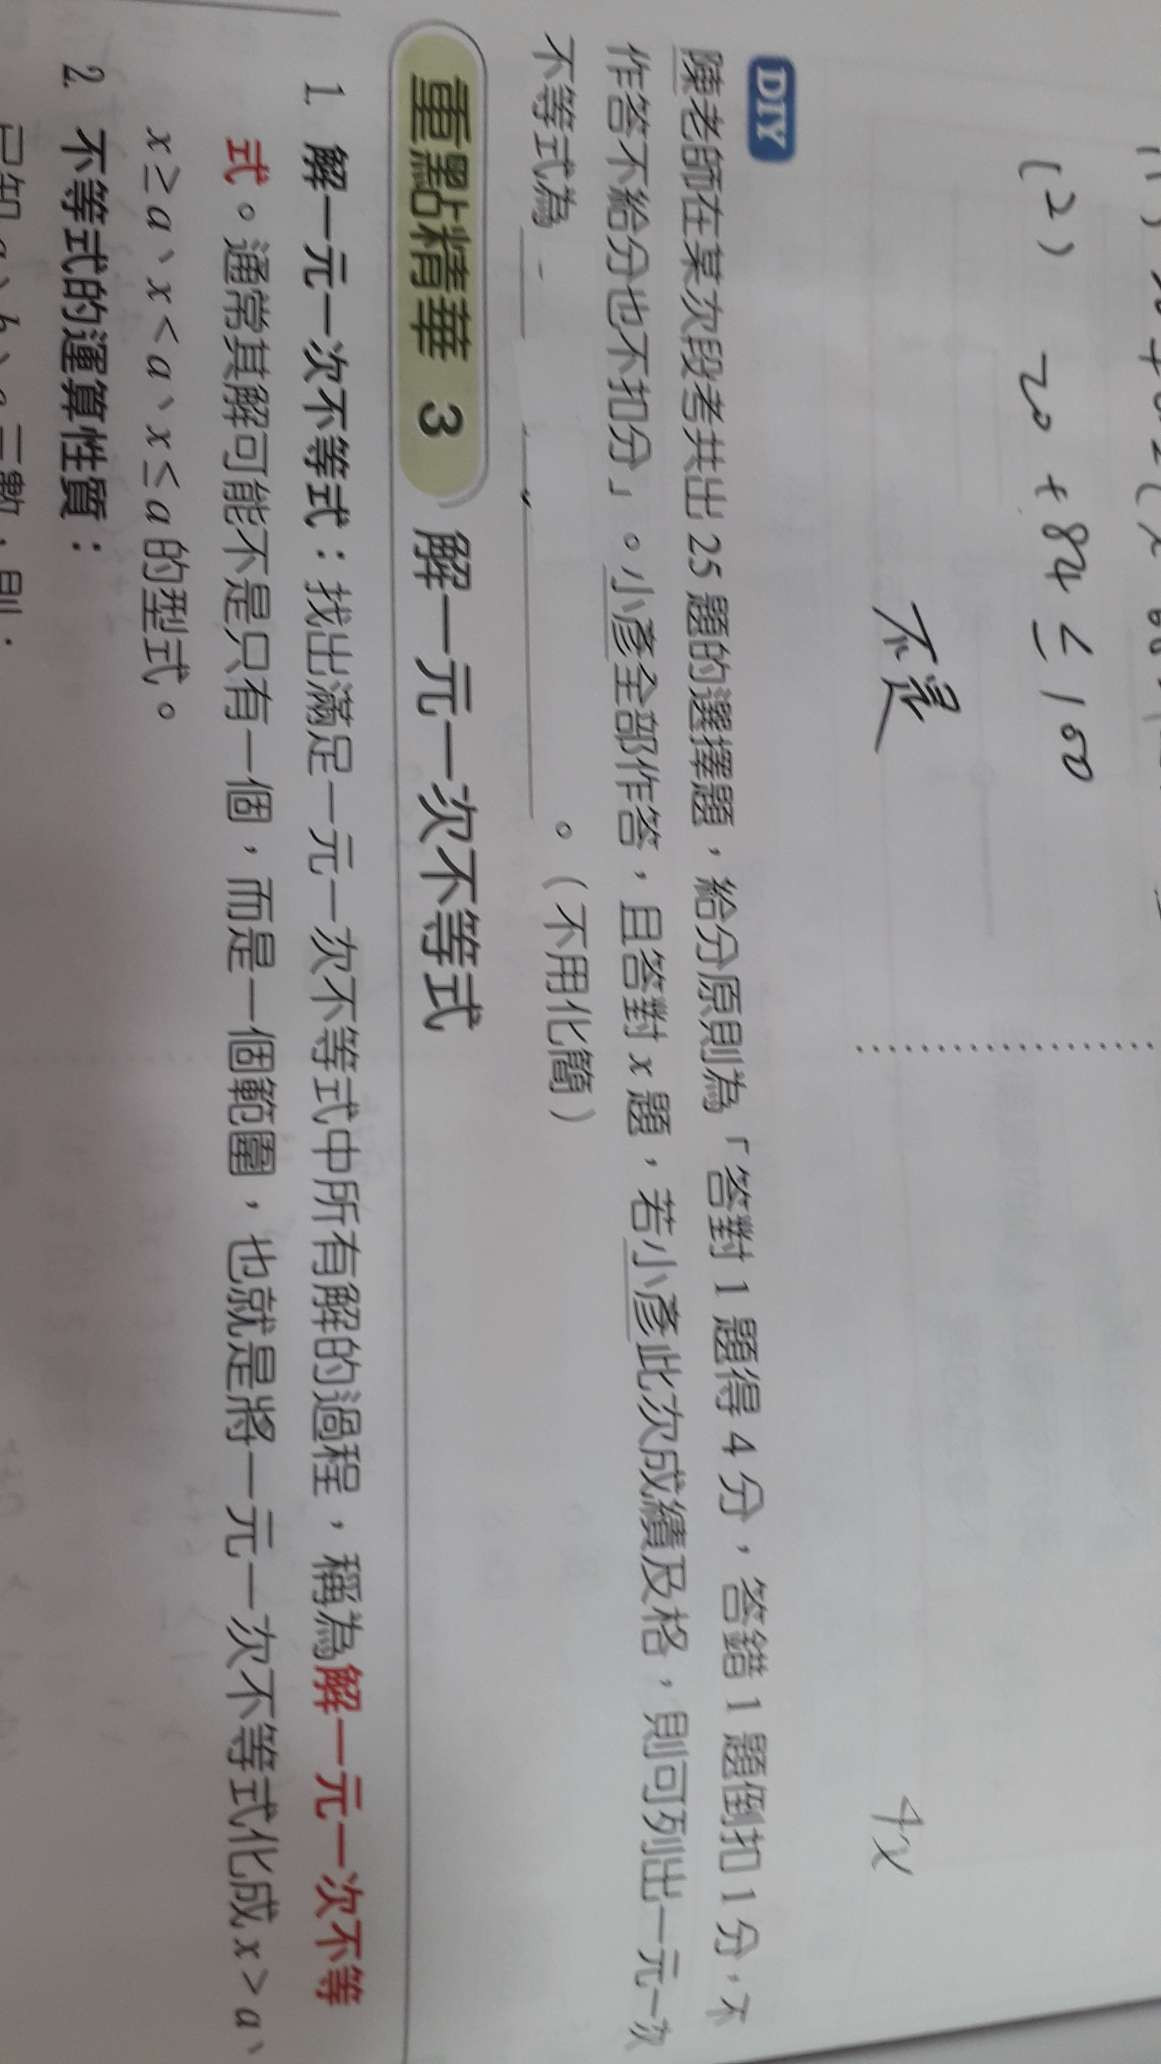 (2) 20 + 84 ≤ 100
不是
4x
DIY
陳老師在某次段考共出 25 題的選擇題，給分原則為「答對 1 題得 4 分，答錯 1 題倒扣 1 分，不
作答不給分也不扣分」。小彥全部作答，且答對 x 題，若小彥此次成績及格，則可列出一元一次
不等式為 。（不用化簡）
重點精華 3 解一元一次不等式
1. 解一元一次不等式：找出滿足一元一次不等式中所有解的過程，稱為解一元一次不等
式。通常其解可能不是只有一個，而是一個範圍，也就是將一元一次不等式化成 x > a、
x ≥ a、x < a、x ≤ a 的型式。
2. 不等式的運算性質：
已知 a、b、c 三數，則：